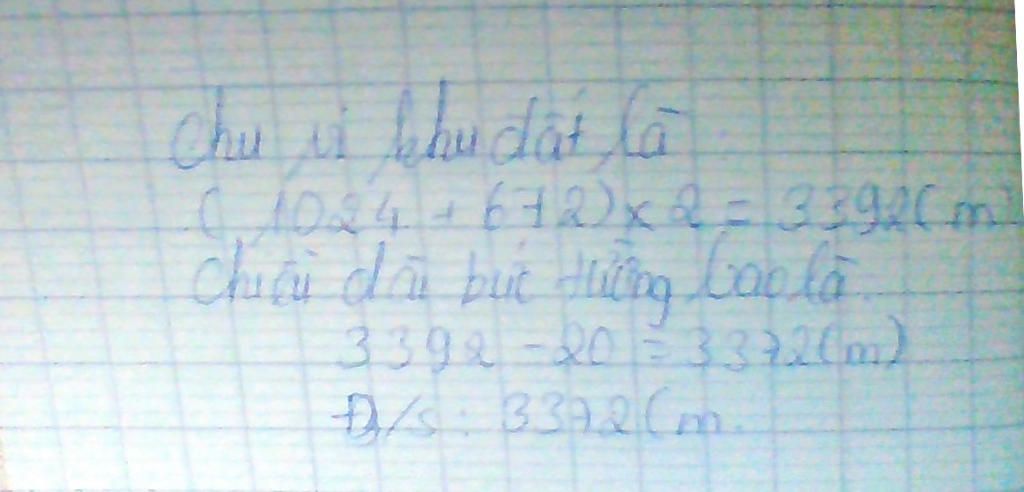 Chu vi khu đất là
( 1024 + 672) x 2 = 3392 ( m
Chiều dài bức tường bao là.
3392 - 20 = 3372 (m)
Đ/s : 3372 ( m.